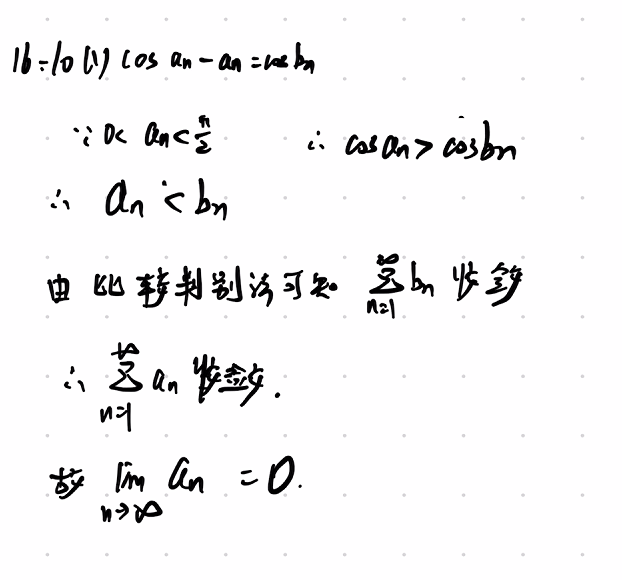 16-10 (1) cos aₙ - aₙ = cos bₙ
∵ 0 < aₙ < π/2 ∴ cos aₙ > cos bₙ
∴ aₙ < bₙ
由比较判别法可知 ∑_{n=1}^{∞} bₙ 收敛
∴ ∑_{n=1}^{∞} aₙ 收敛.
故 lim_{n→∞} aₙ = 0.